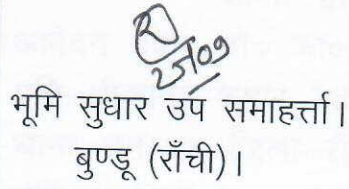 भूमि सुधार उप समाहर्त्ता।
बुण्डू (राँची)।